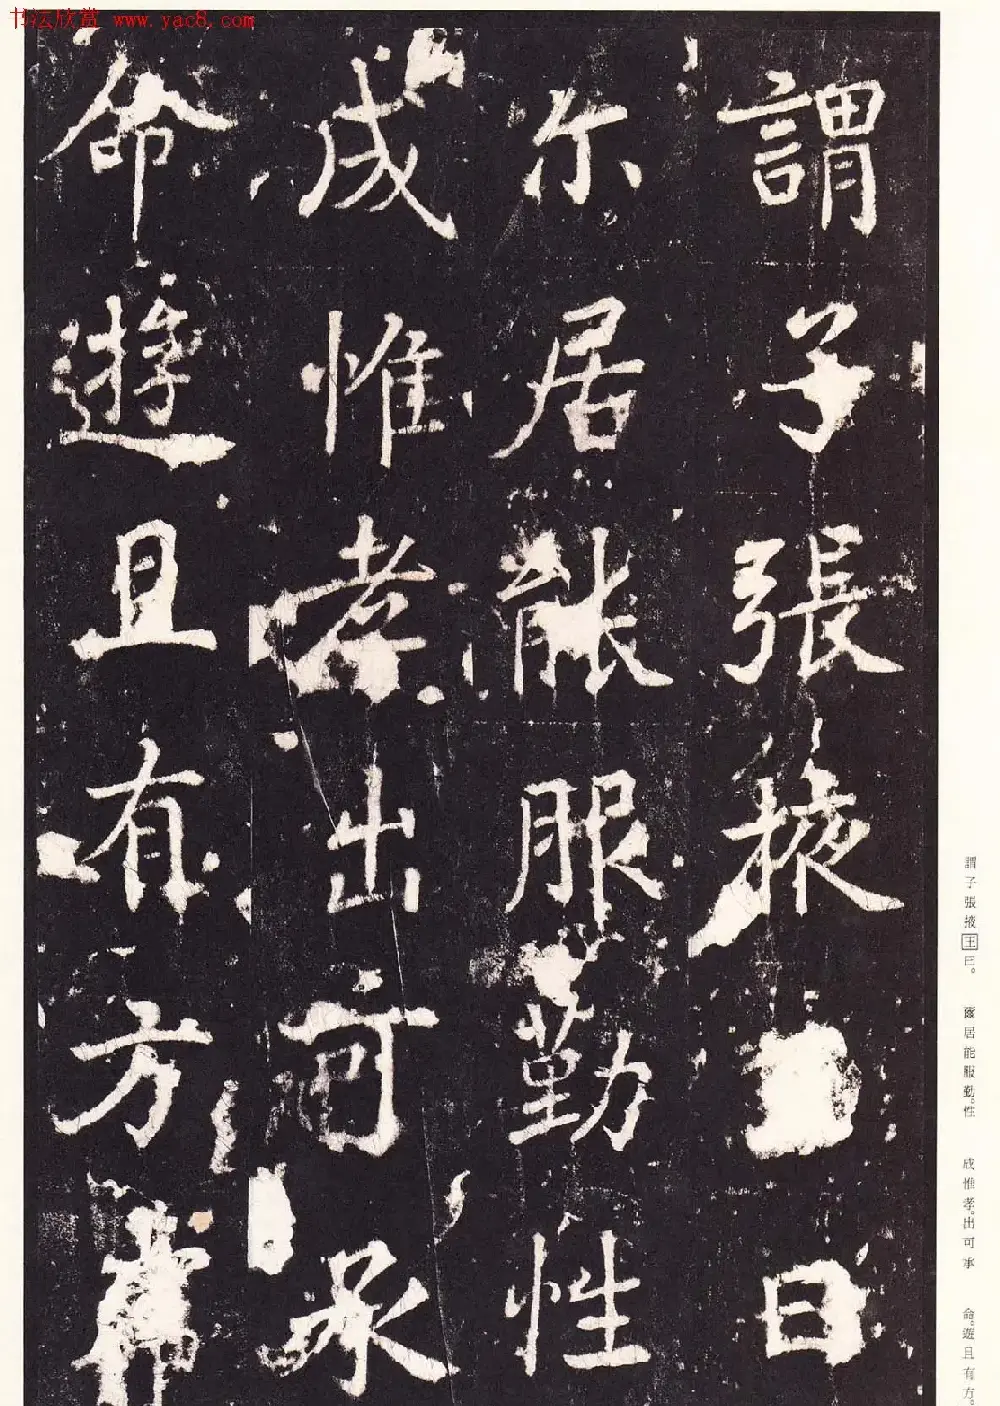 书法欣赏 www.yac8.com
謂子張掖曰
尔居能服勤性
成惟孝出可承
命遊且有方
謂子張掖王曰。 爾居能服勤。性 成惟孝。出可承 命。遊且有方。